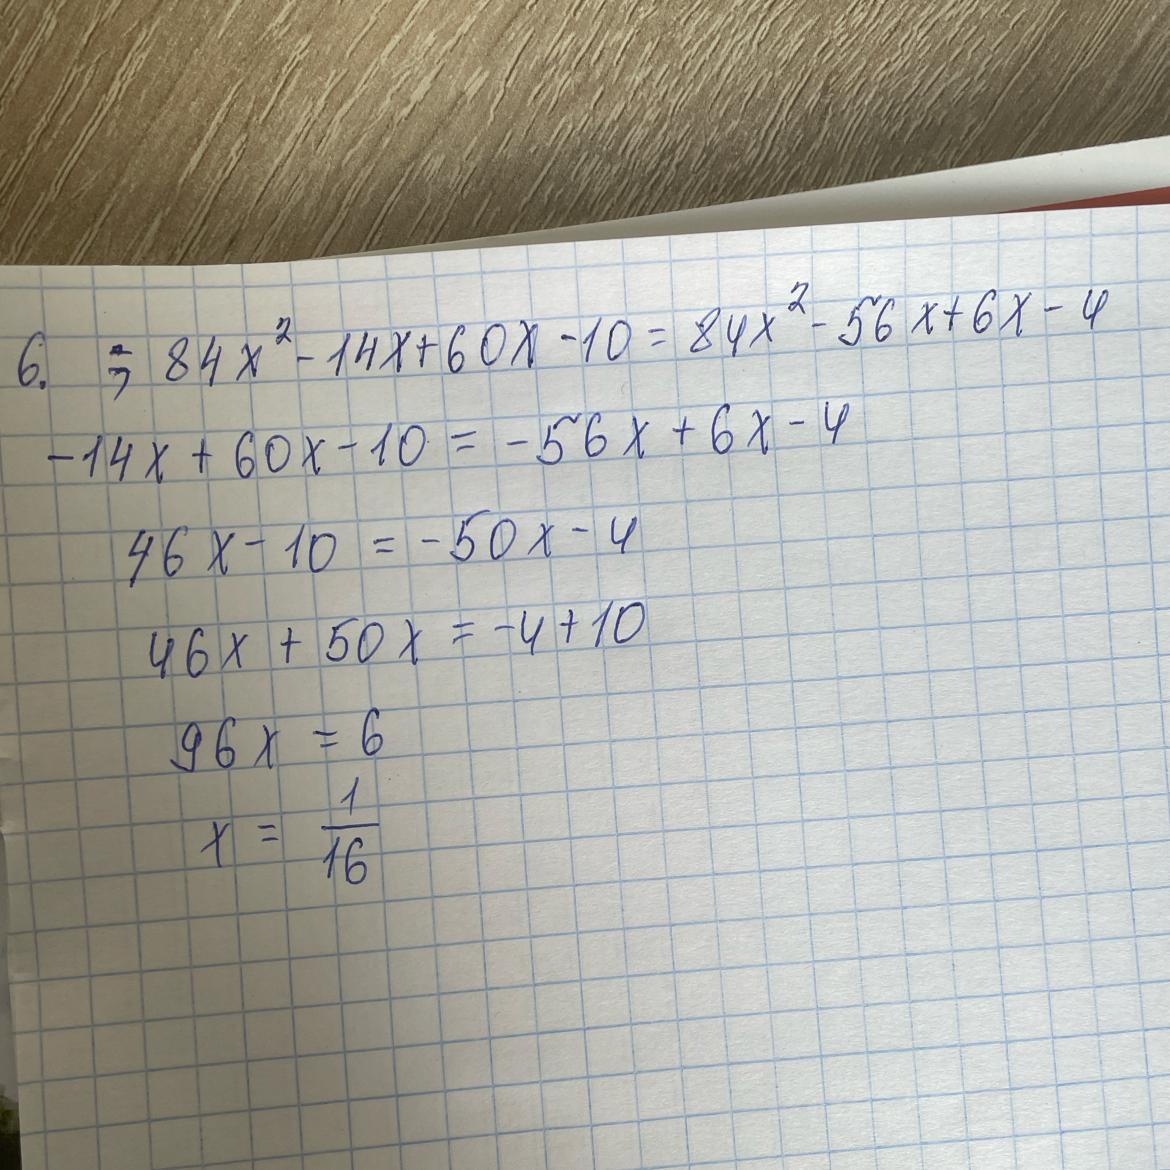 6. ⇒ 84x² - 14x + 60x - 10 = 84x² - 56x + 6x - 4
-14x + 60x - 10 = -56x + 6x - 4
46x - 10 = -50x - 4
46x + 50x = -4 + 10
96x = 6
x = 1/16